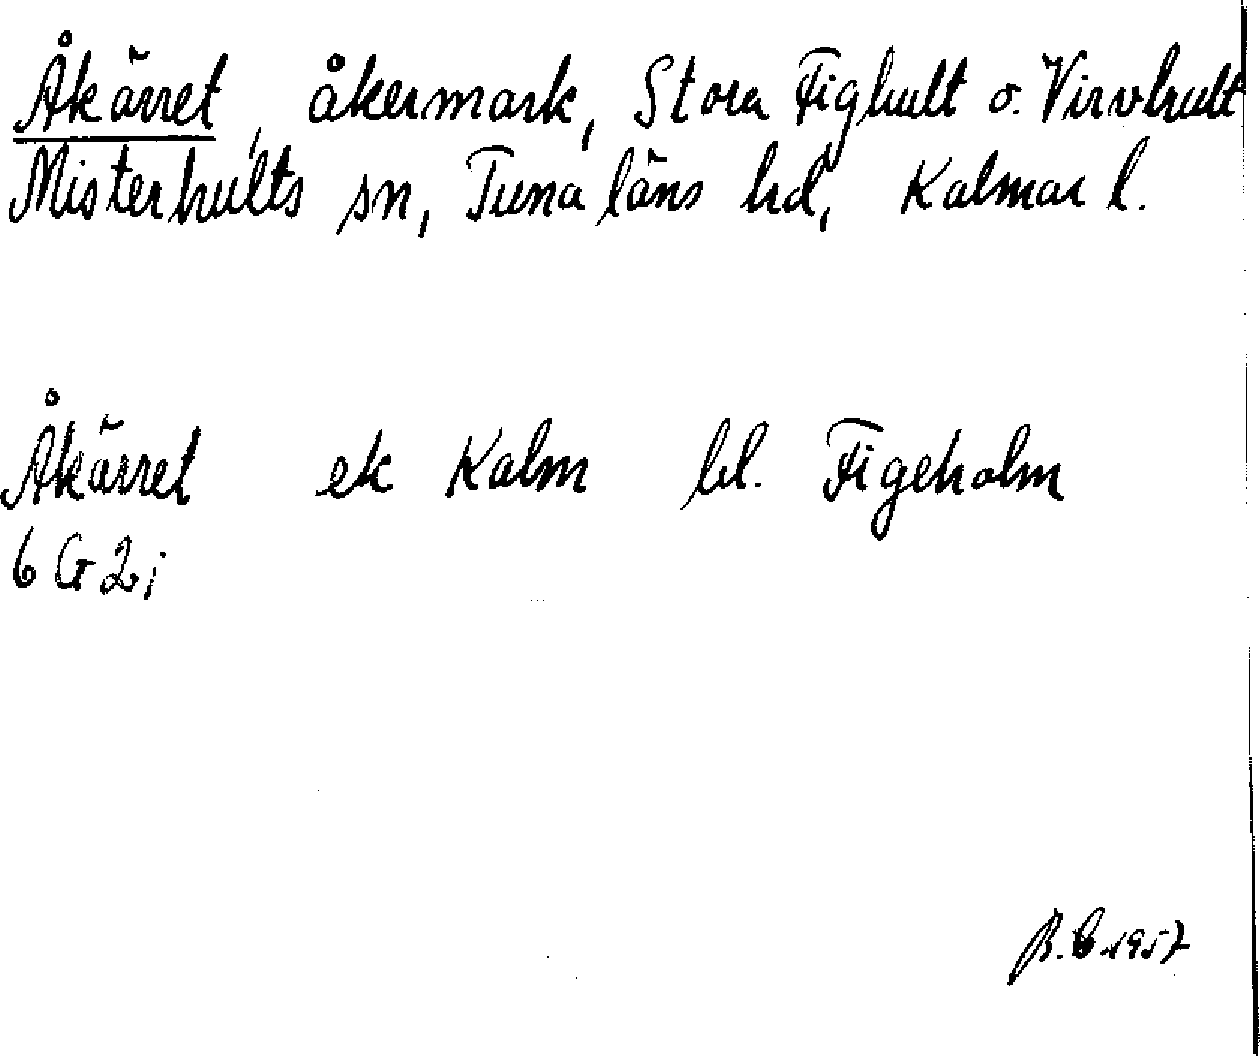 Åkärret, åkermark, Stora Fighult o. Virvhult
Misterhults sn, Tunaläns hd, Kalmar l.
Åkärret ek Kalm bl. Figeholm
6 G 2 i
B. E 1957